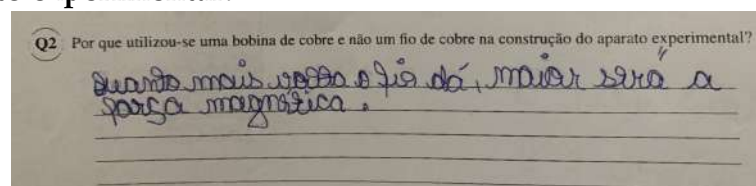 Q2 Por que utilizou-se uma bobina de cobre e não um fio de cobre na construção do aparato experimental?
quanto mais volta o fio dá, maior será a
força magnética.